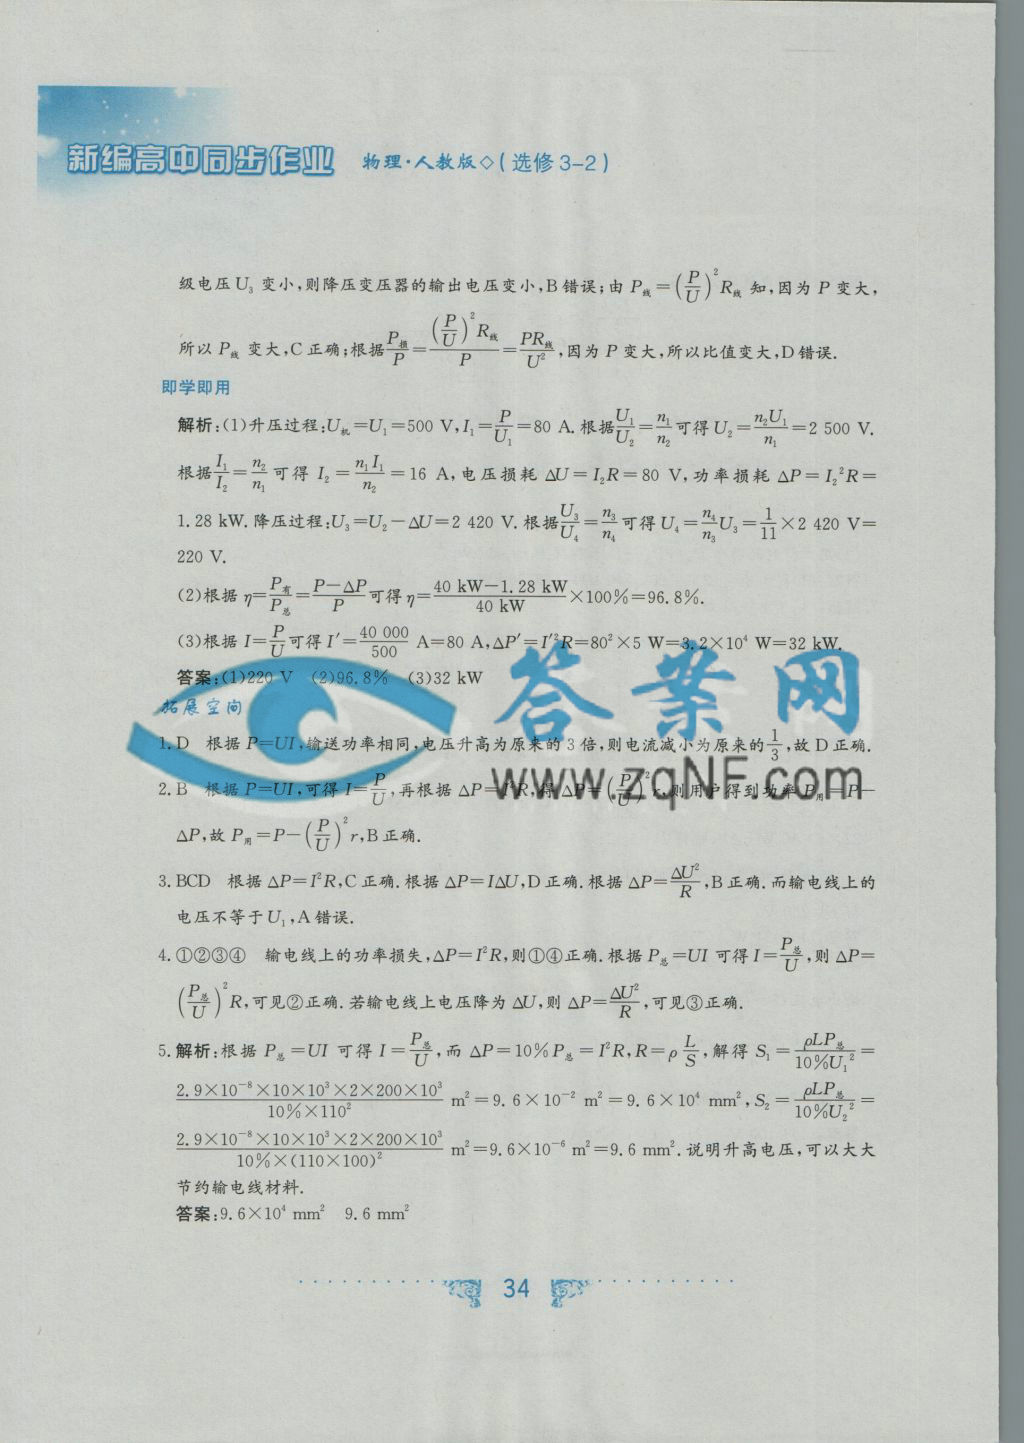 新编高中同步作业 物理·人教版◇(选修3-2)
级电压U₃ 变小,则降压变压器的输出电压变小,B错误;由 P线=(P/U)²R线 知,因为 P 变大,
所以 P线 变大,C正确;根据P损/P=(P/U)²R线/P=PR线/U²,因为 P 变大,所以比值变大,D错误.
即学即用
解析:(1)升压过程:U机=U₁=500 V,I₁=P/U₁=80 A.根据U₁/U₂=n₁/n₂可得U₂=n₂U₁/n₁=2 500 V.
根据I₁/I₂=n₂/n₁可得 I₂=n₁I₁/n₂=16 A,电压损耗 ΔU=I₂R=80 V,功率损耗 ΔP=I₂²R=
1.28 kW.降压过程:U₃=U₂-ΔU=2 420 V.根据U₃/U₄=n₃/n₄可得U₄=n₄/n₃U₃=1/11×2 420 V=
220 V.
(2)根据 η=P有/P总=P-ΔP/P可得 η=40 kW-1.28 kW/40 kW×100%=96.8%.
(3)根据 I=P/U可得 I′=40 000/500 A=80 A,ΔP′=I′²R=80²×5 W=3.2×10⁴ W=32 kW.
答案:(1)220 V (2)96.8% (3)32 kW
拓展空间
1.D 根据 P=UI,输送功率相同,电压升高为原来的3倍,则电流减小为原来的1/3,故D正确.
2.B 根据 P=UI,可得 I=P/U,再根据 ΔP=I²R,得 ΔP=(P/U)²r,则用户得到功率 P用=P-
ΔP,故 P用=P-(P/U)²r,B正确.
3.BCD 根据 ΔP=I²R,C正确.根据 ΔP=IΔU,D正确.根据 ΔP=ΔU²/R,B正确.而输电线上的
电压不等于U₁,A错误.
4.①②③④ 输电线上的功率损失,ΔP=I²R,则①④正确.根据 P总=UI 可得 I=P总/U,则 ΔP=
(P总/U)²R,可见②正确.若输电线上电压降为 ΔU,则 ΔP=ΔU²/R,可见③正确.
5.解析:根据 P总=UI 可得 I=P总/U,而 ΔP=10%P总=I²R,R=ρL/S,解得 S₁=ρLP总/10%U₁²=
2.9×10⁻⁸×10×10³×2×200×10³/10%×110² m²=9.6×10⁻² m²=9.6×10⁴ mm²,S₂=ρLP总/10%U₂²=
2.9×10⁻⁸×10×10³×2×200×10³/10%×(110×100)² m²=9.6×10⁻⁶ m²=9.6 mm².说明升高电压,可以大大
节约输电线材料.
答案:9.6×10⁴ mm² 9.6 mm²
34
答案网
www.zqNF.com